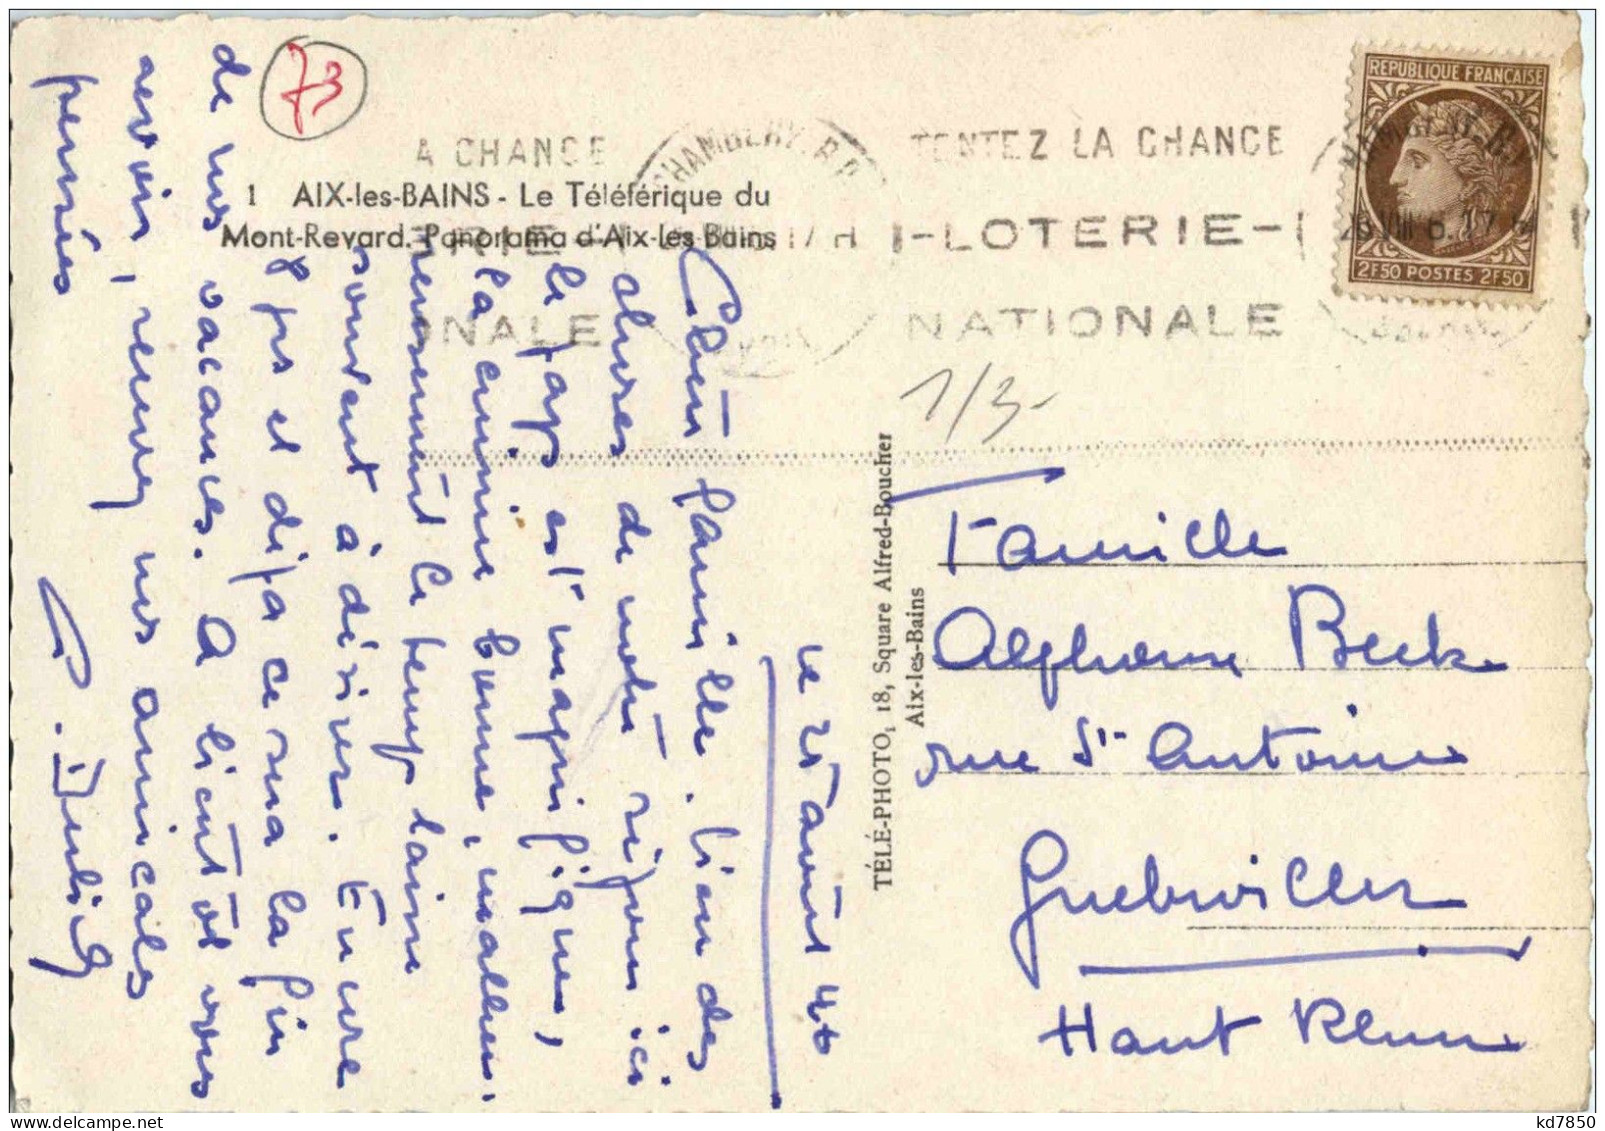 73
A CHANCE
CHAMBERY. R.P.
TENTEZ LA CHANCE
1 AIX-les-BAINS - Le Téléférique du
Mont-Revard. Panorama d'Aix-les-Bains
ERIE -
-LOTERIE-
NALE
NATIONALE
RÉPUBLIQUE FRANÇAISE
2F50 POSTES 2F50
1/3-
TÉLÉ-PHOTO, 18, Square Alfred-Boucher
Aix-les-Bains
le 25 août 46
Chère famille. Bien des
choses de notre séjour ici
le pays est magnifique,
la cuisine bonne, malheu-
reusement le temps laisse
souvent à désirer. Encore
8 jrs et déjà ce sera la fin
de nos vacances. A bientôt vous
revoir, recevez nos amicales
pensées
Famille
Alphonse Beck
rue St Antoine
Guebwiller
Haut Rhin
kd7850